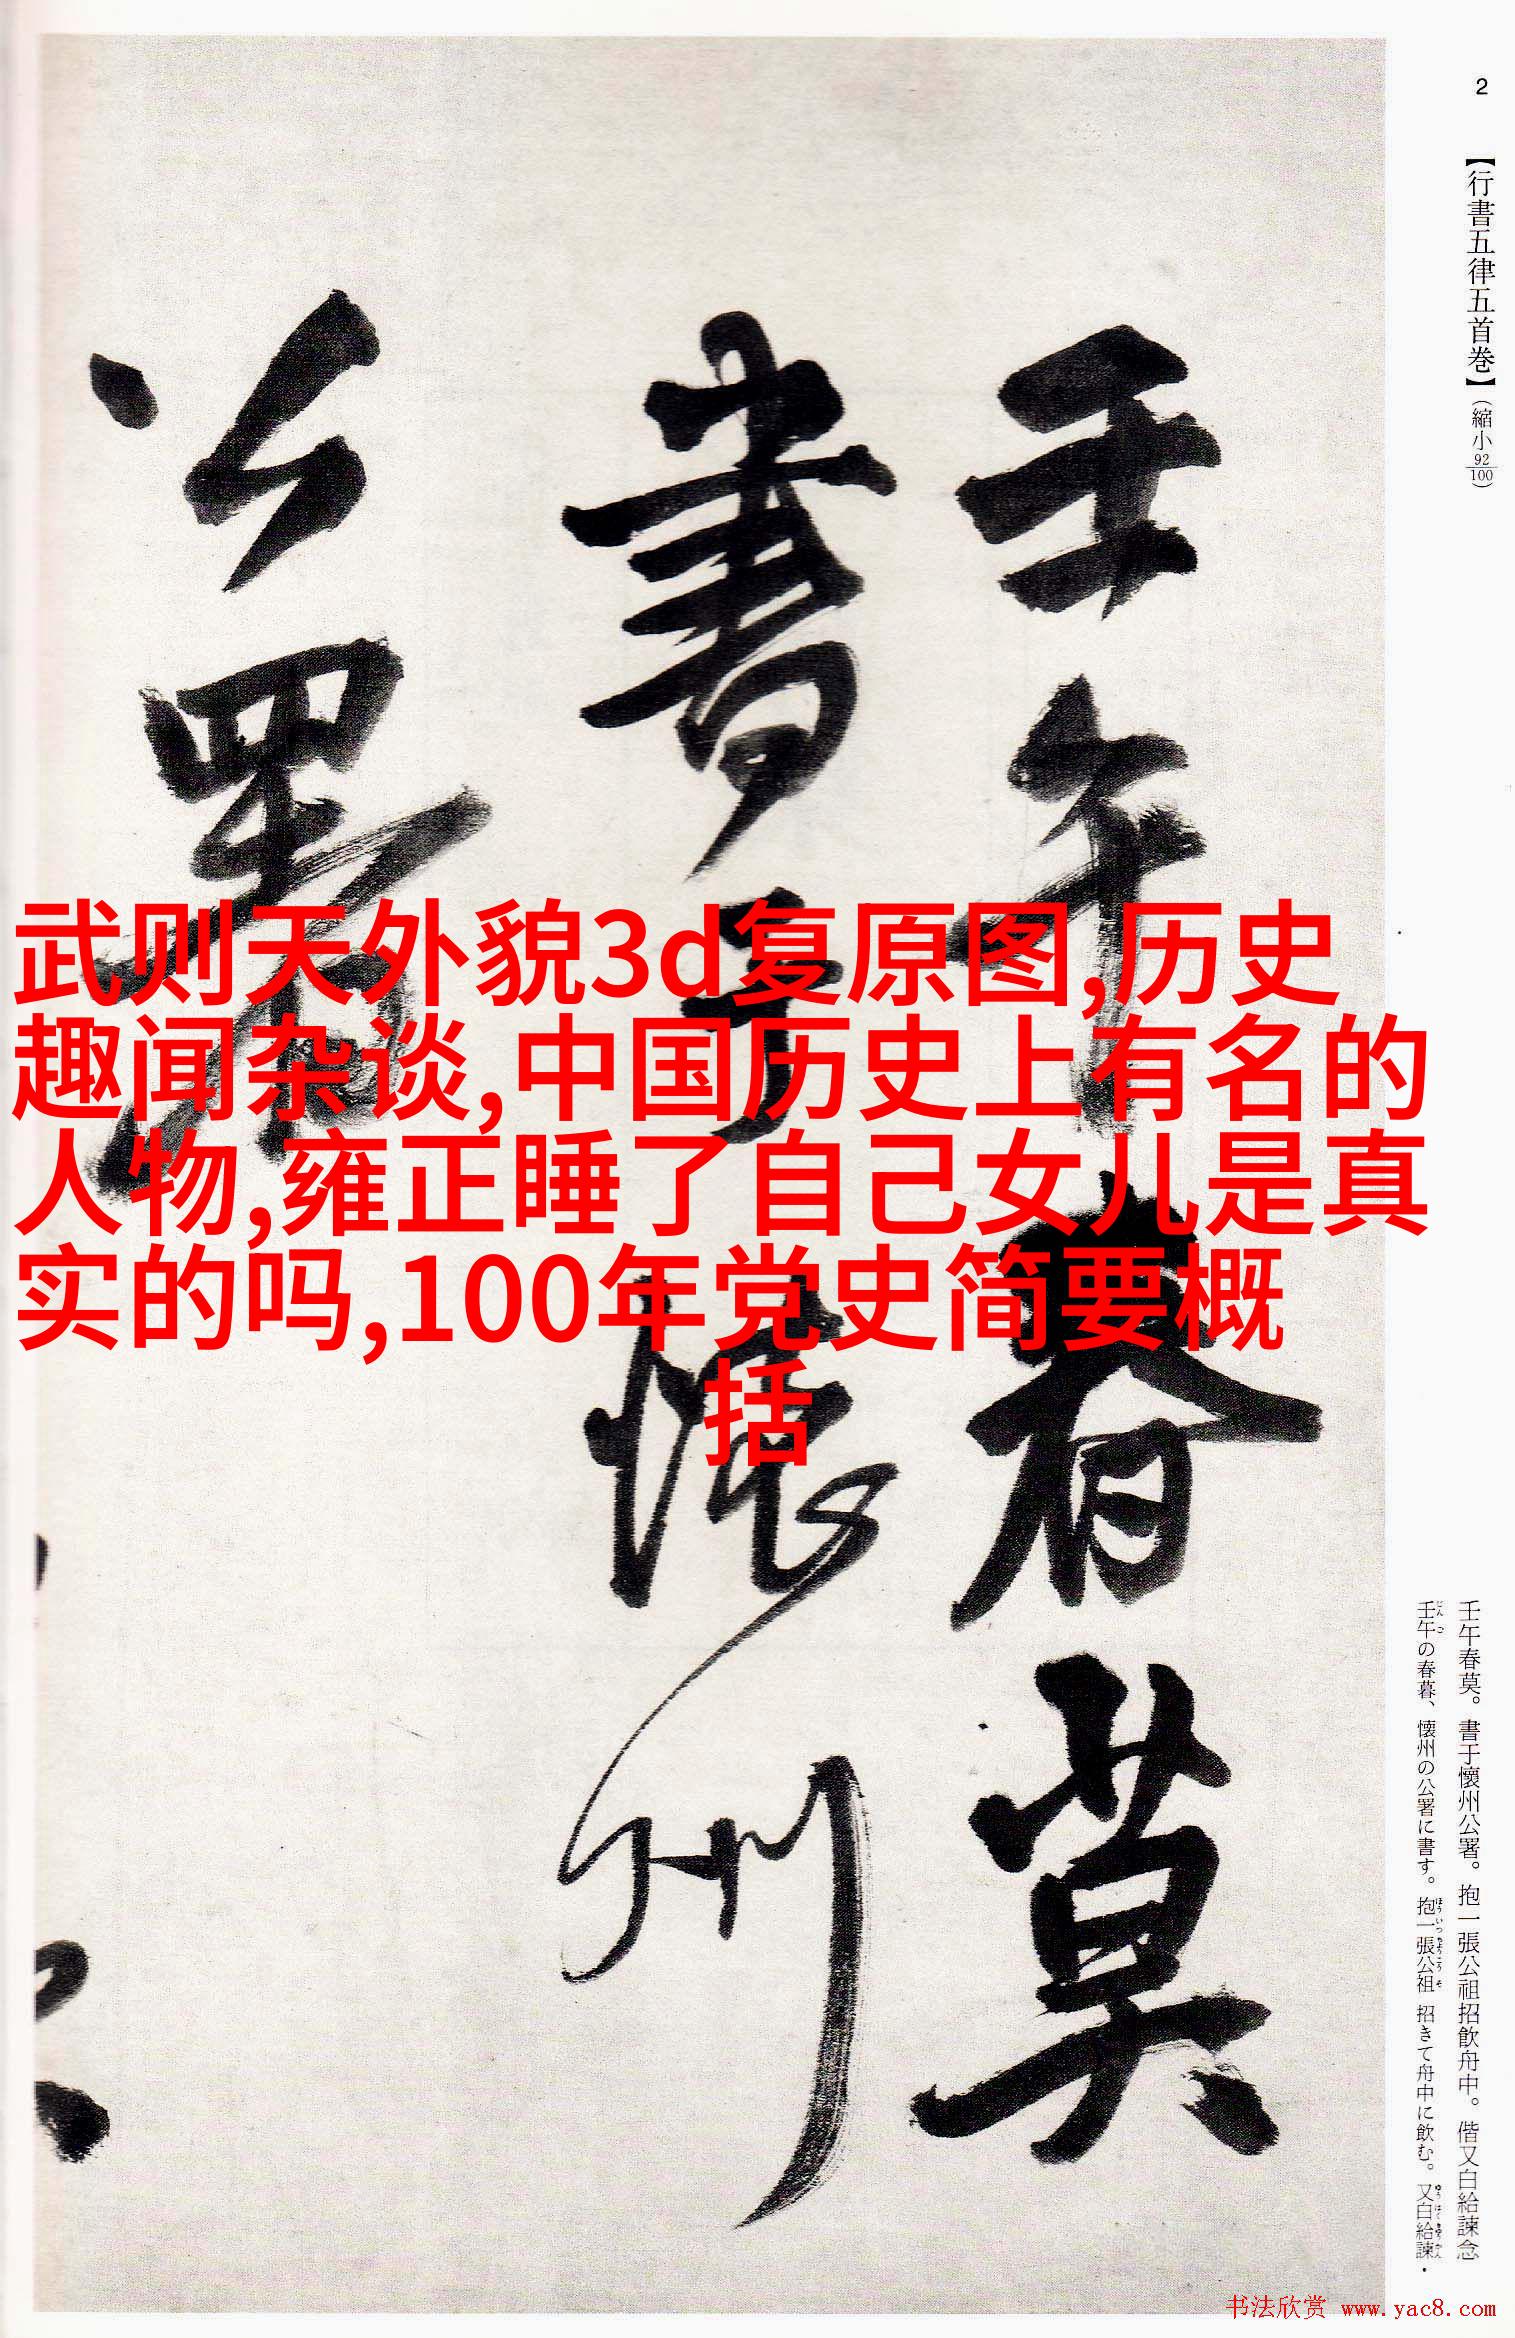 2
【行書五律五首巻】（縮小92/100）
壬午春莫
書于懷州
公署
武则天外貌3d复原图,历史
趣闻杂谈,中国历史上有名的
人物,雍正睡了自己女儿是真
实的吗,100年党史简要概
括
壬午春莫。書于懷州公署。抱一張公祖招飲舟中。偕又白給諫念
壬午の春暮、懐州の公署に書す。抱一張公祖 招きて舟中に飲む。又白給諫・
书法欣赏 www.yac8.com